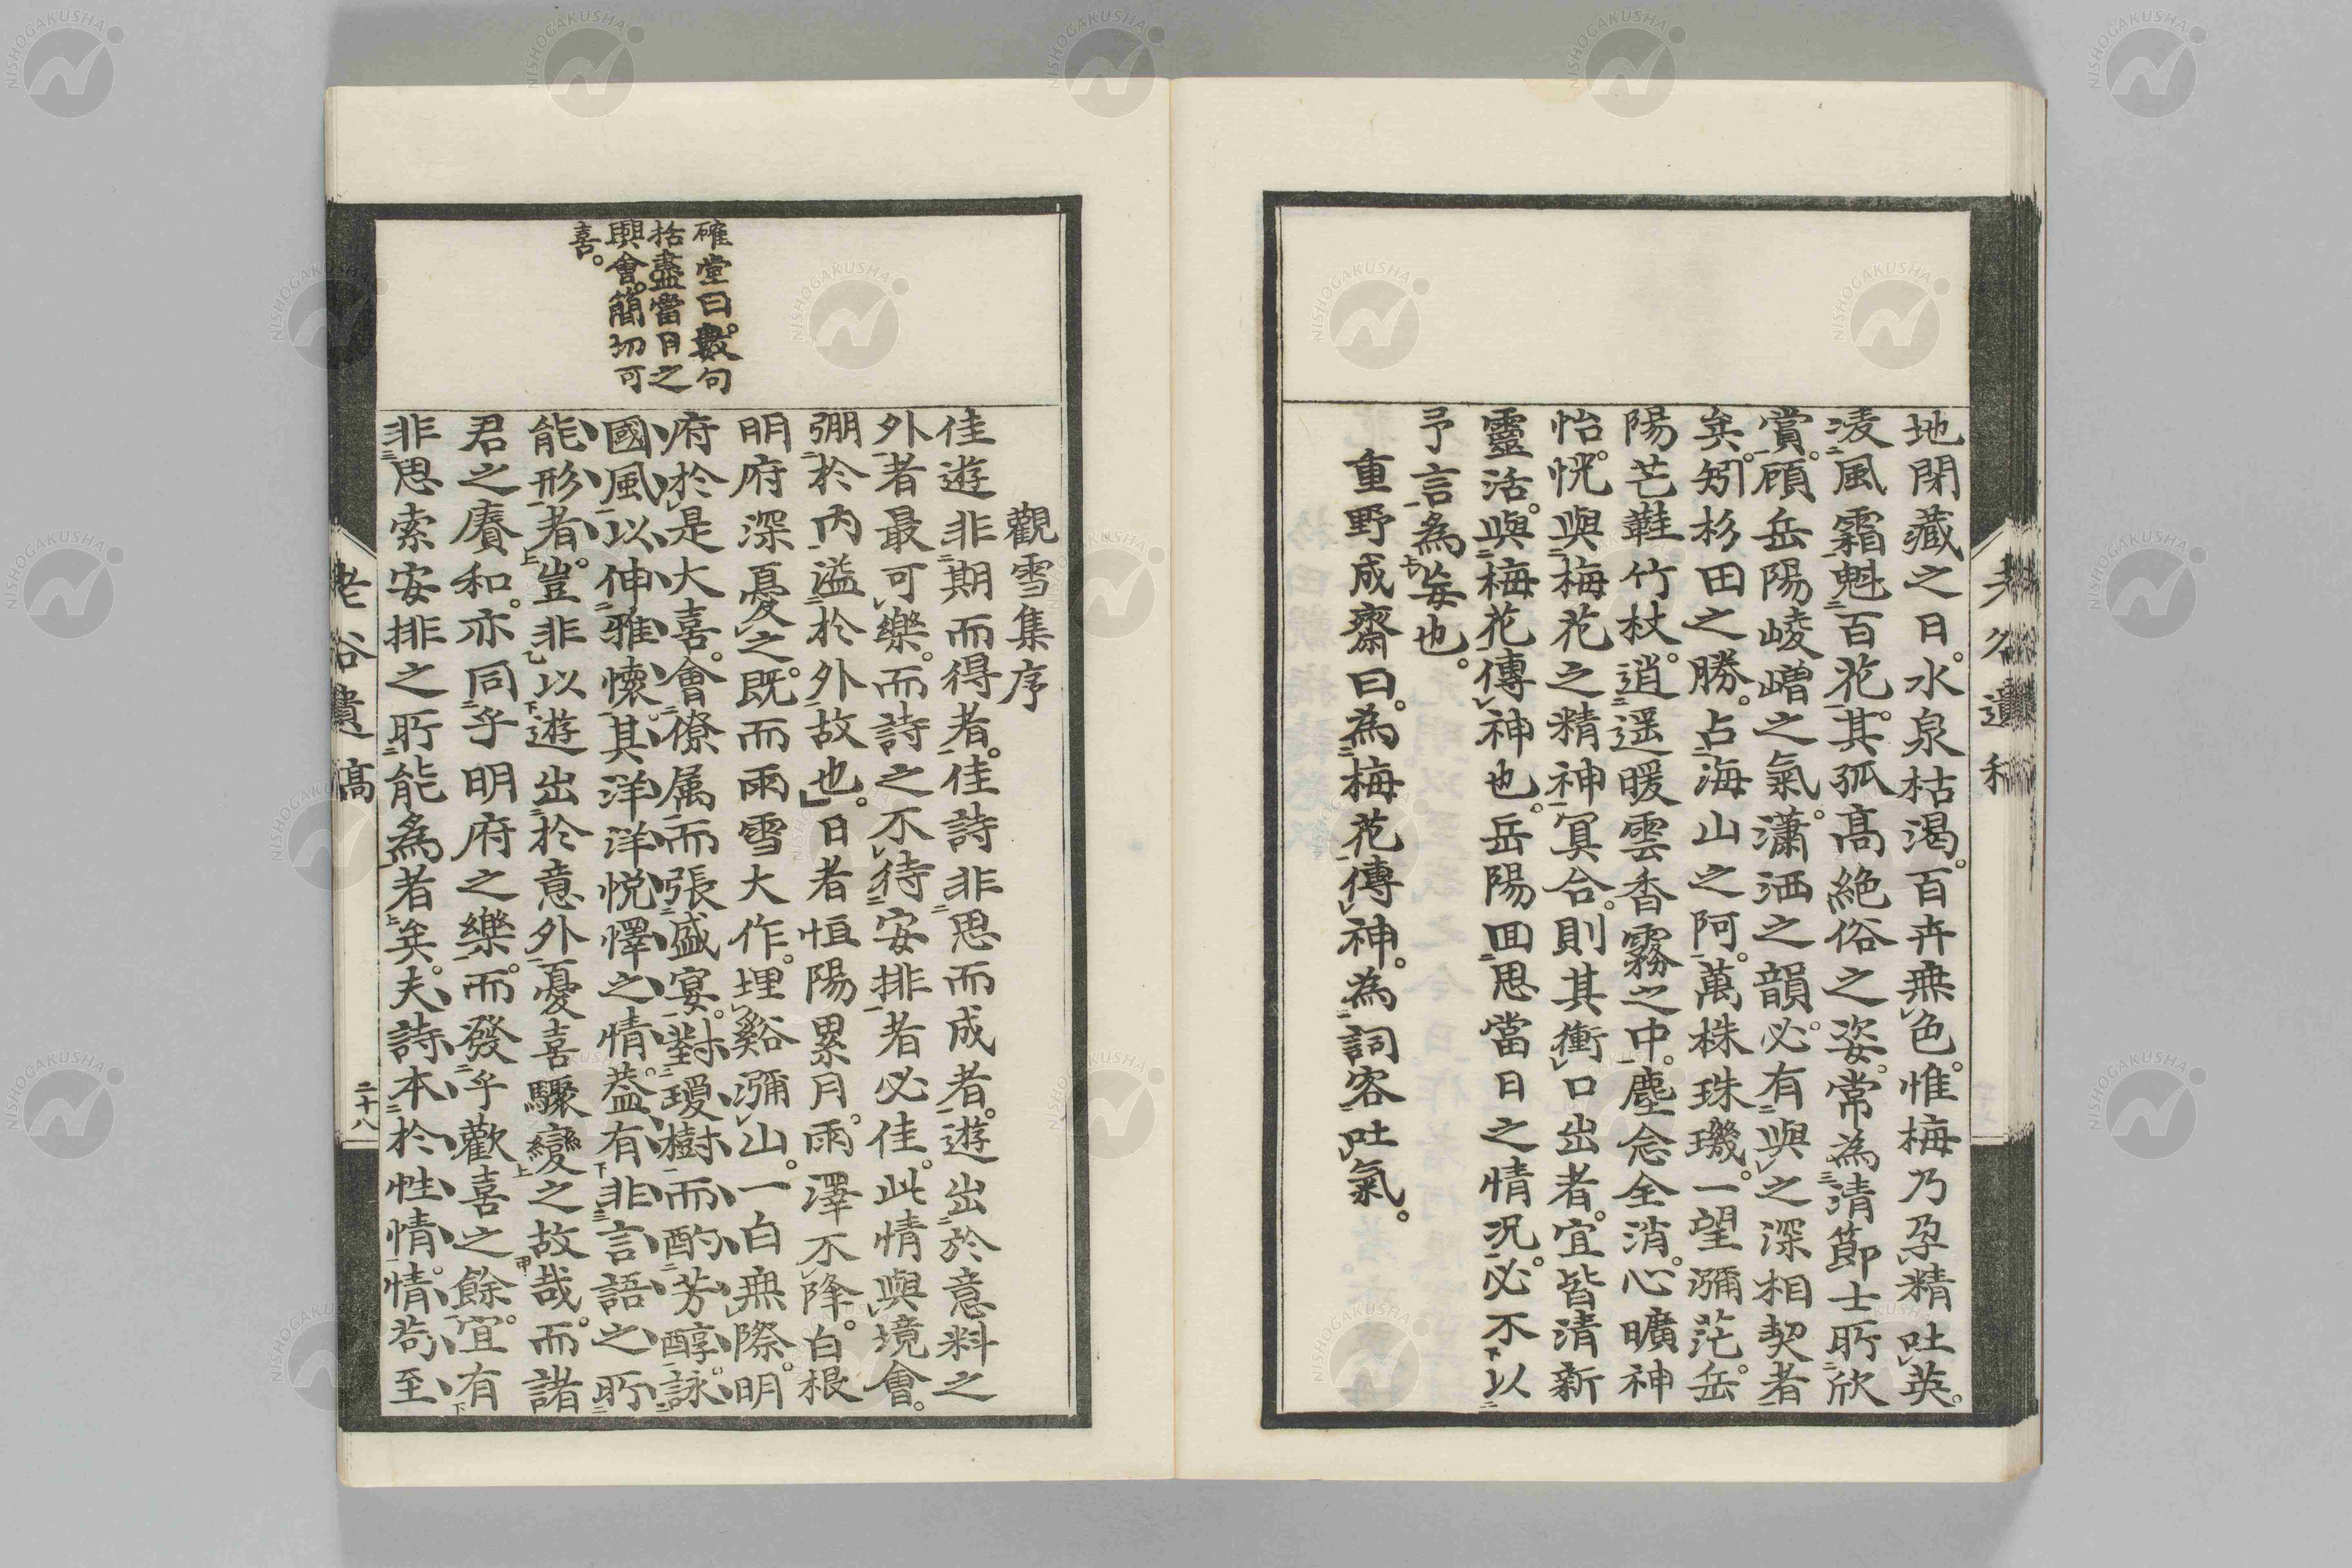 地閉藏之日。水泉枯渴。百卉無色。惟梅乃孕精吐英。
凌風霜魁百花。其孤髙絶俗之姿。常為清節士所欣
賞。顧岳陽崚嶒之氣。瀟洒之韻。必有與之深相契者
矣。矧杉田之勝。占海山之阿。萬株珠璣。一望瀰茫。岳
陽芒鞋竹杖。逍遥暖雲香霧之中。塵念全消。心曠神
怡。恍與梅花之精神冥合。則其衝口出者。宜皆清新
靈活。與梅花傳神也。岳陽囬思當日之情況。必不以
予言為妄也。
重野成齋曰。為梅花傳神。為詞客吐氣。
觀雪集序
佳遊非期而得者。佳詩非思而成者。遊出於意料之
外者最可樂。而詩之不待安排者必佳。此情與境會。
弸於内溢於外故也。日者恒陽累月。雨澤不降。白根
明府深憂之。既而雨雪大作。埋谿瀰山。一白無際。明
府於是大喜。會僚属而張盛宴。對瓊樹而酌芳醇。詠
國風以伸雅懷。其洋洋悦懌之情。葢有非言語之所
能形者。豈非以遊出於意外憂喜驟變之故哉。而諸
君之賡和。亦同乎明府之樂。而發乎歡喜之餘。宜有
非思索安排之所能為者矣。夫詩本於性情。情苟至
確堂曰。數句
括盡當日之
興會。簡切可
喜。
老谷遺稿
二十八